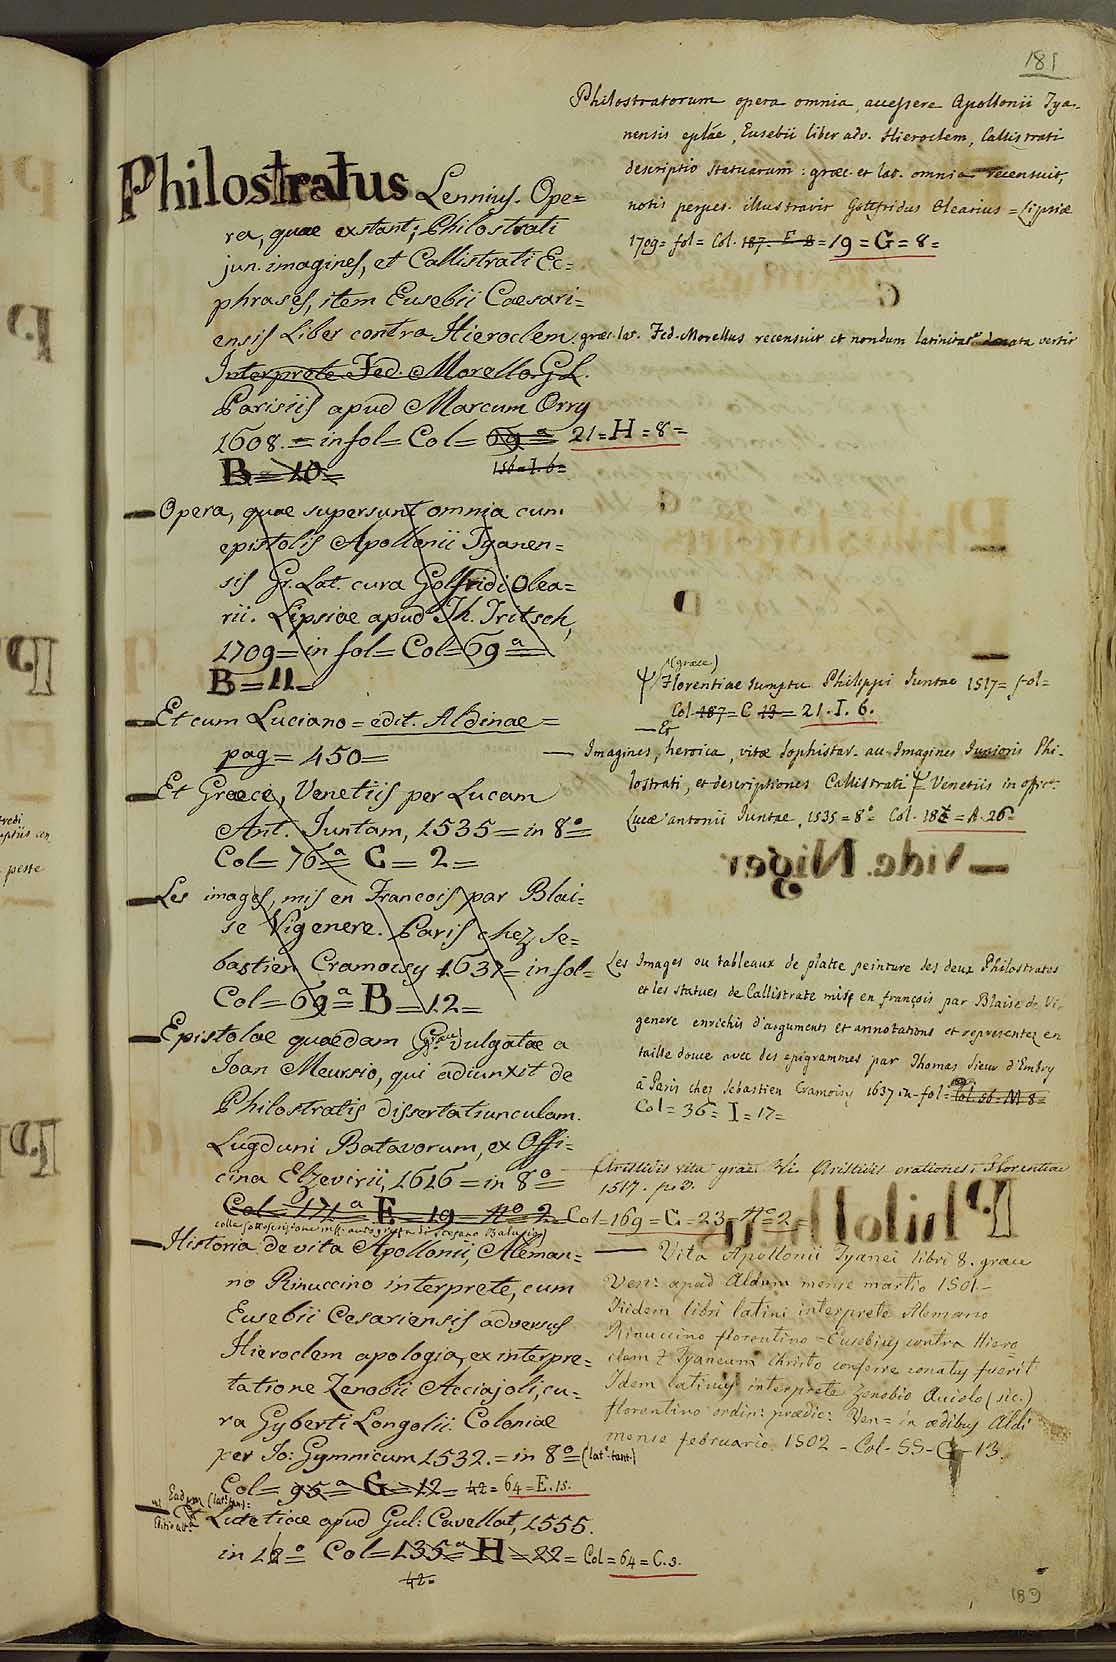 181
Philostratus Lennius. Ope=
ra, quae extant; Philostrati
jun. imagines, et Callistrati Ec=
phrases, item Eusebii Caesari=
ensis Liber contra Hieroclem. græc. lat. Fed. Morellus recensuit et nondum latinitate donata vertit
Interprete Fed. Morello. G.L.
Parisiis apud Marcum Orry
1608. = in fol = Col = 69 a = 21 = H = 8 =
B = 10 = 156 = I. 6 =
Opera, quae supersunt omnia cum
epistolis Apollonii Tyanen=
sis Gr. Lat. cura Golfridi Olea=
rii. Lipsiae apud Th. Fritsch,
1709 = in fol = Col = 69 a =
B = 11 =
Et cum Luciano = edit. Aldinae =
pag = 450 =
Et Graecè, Venetiis per Lucam
Ant. Juntam, 1535 = in 8o =
Col = 76 a C = 2 =
Les images, mis en Francois par Blai=
se Vigenere. Paris chez Se=
bastien Cramoisy 1637 = in fol =
Col = 69 a = B = 12 =
Epistolae quaedam (Graece) vulgatae a
Joan Meursio, qui adiunxit de
Philostratis dissertatiunculam.
Lugduni Batavorum, ex Offi=
cina Elzevirii, 1616 = in 8o =
Col = 171 a E = 19 No 2 = Col = 169 = C = 23 = No 2 =
Historia de vita Apollonii, Aleman=
no Rinuccino interprete, cum
Eusebii Cesariensis adversus
Hieroclem apologia, ex interpre=
tatione Zenobii Acciajoli, cu=
ra Gyberti Longolii. Coloniae
per Jo: Gymnicum 1532. = in 8o = (lat. tant.)
Col = 95 a = G = 12 = 42 = 64 = E. 15.
Eadem (lat. tan.) =
Lutetiae apud Gul: Cavellat, 1555.
in 12o = Col = 135 a H = 22 = Col = 64 = C. 3.
42 =
Philostratorum opera omnia, accessere Apollonii Tya-
nensis eplae, Eusebii liber adv. Hieroclem, Callistrati
descriptio statuarum: græc. et lat. omnia recensuit,
notis perpet. illustravit Gotefridus Olearius = Lipsiæ
1709 = fol = Col. 187. E 8 = 19 = G = 8 =
(græce)
Florentiae sumptu Philippi Juntae 1517 = fol =
Col 187 = C 13 = 21. I. 6.
Et
Imagines, heroica, vitæ Sophistar. ac Imagines Junioris Phi-
lostrati, et descriptiones Callistrati Venetiis in offic.
Lucæ antonii Juntae, 1535 = 8o Col. 187 = A. 26 =
Les Images ou tableaux de platte peinture des deux Philostrates
et les statues de Callistrate mise en françois par Blaise de Vi-
genere enrichis d'arguments et annotations et representez en
taille douce avec des epigrammes par Thomas Sieur d'Embry
à Paris chez Sebastien Cramoisy 1637 in-fol = Col. 56 = M 8 =
Col = 36 = I = 17 =
Aristidis vita græce Vi. Aristidis orationes. Florentiae
1517. p. 2.
Vita Apollonii Tyanei libri 8. græce
Ven: apud Aldum mense martio 1501 -
Iidem libri latini interprete Alemano
Rinuccino florentino = Eusebius contra Hiero
clem q Tyaneum Christo conferre conatus fuerit
Idem latinus interprete Zenobio Aciolo (sic.)
florentino ordin: prædic: Ven = in ædibus Aldi
mense februario 1502 - Col - 55 - G - 13.
189